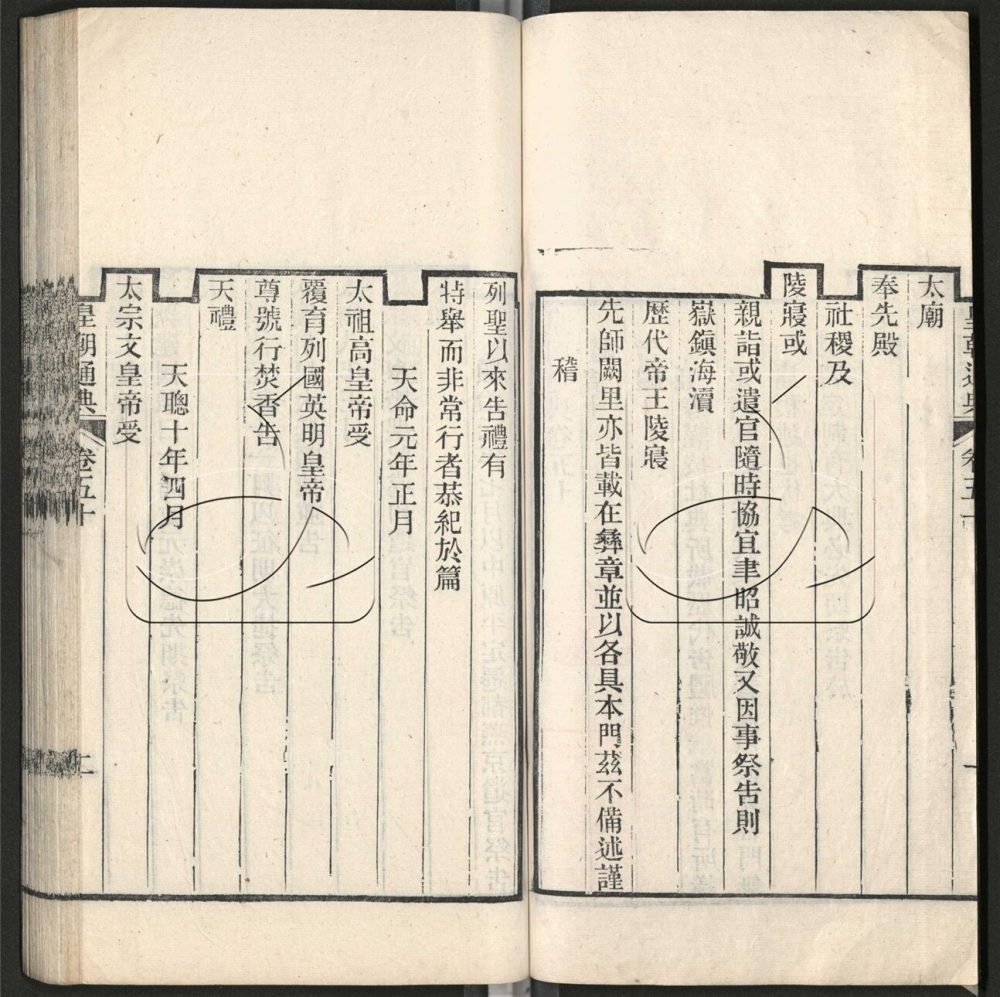 太廟
奉先殿
社稷及
陵寢或
親詣或遣官隨時協宜聿昭誠敬又因事祭告則
嶽鎮海瀆
歷代帝王陵寢
先師闕里亦皆載在彝章並以各具本門茲不備述謹
稽
列聖以來告禮有
特舉而非常行者恭紀於篇
天命元年正月
太祖高皇帝受
覆育列國英明皇帝
尊號行焚香告
天禮
天聰十年四月
太宗文皇帝受
皇朝通典 卷五十 二